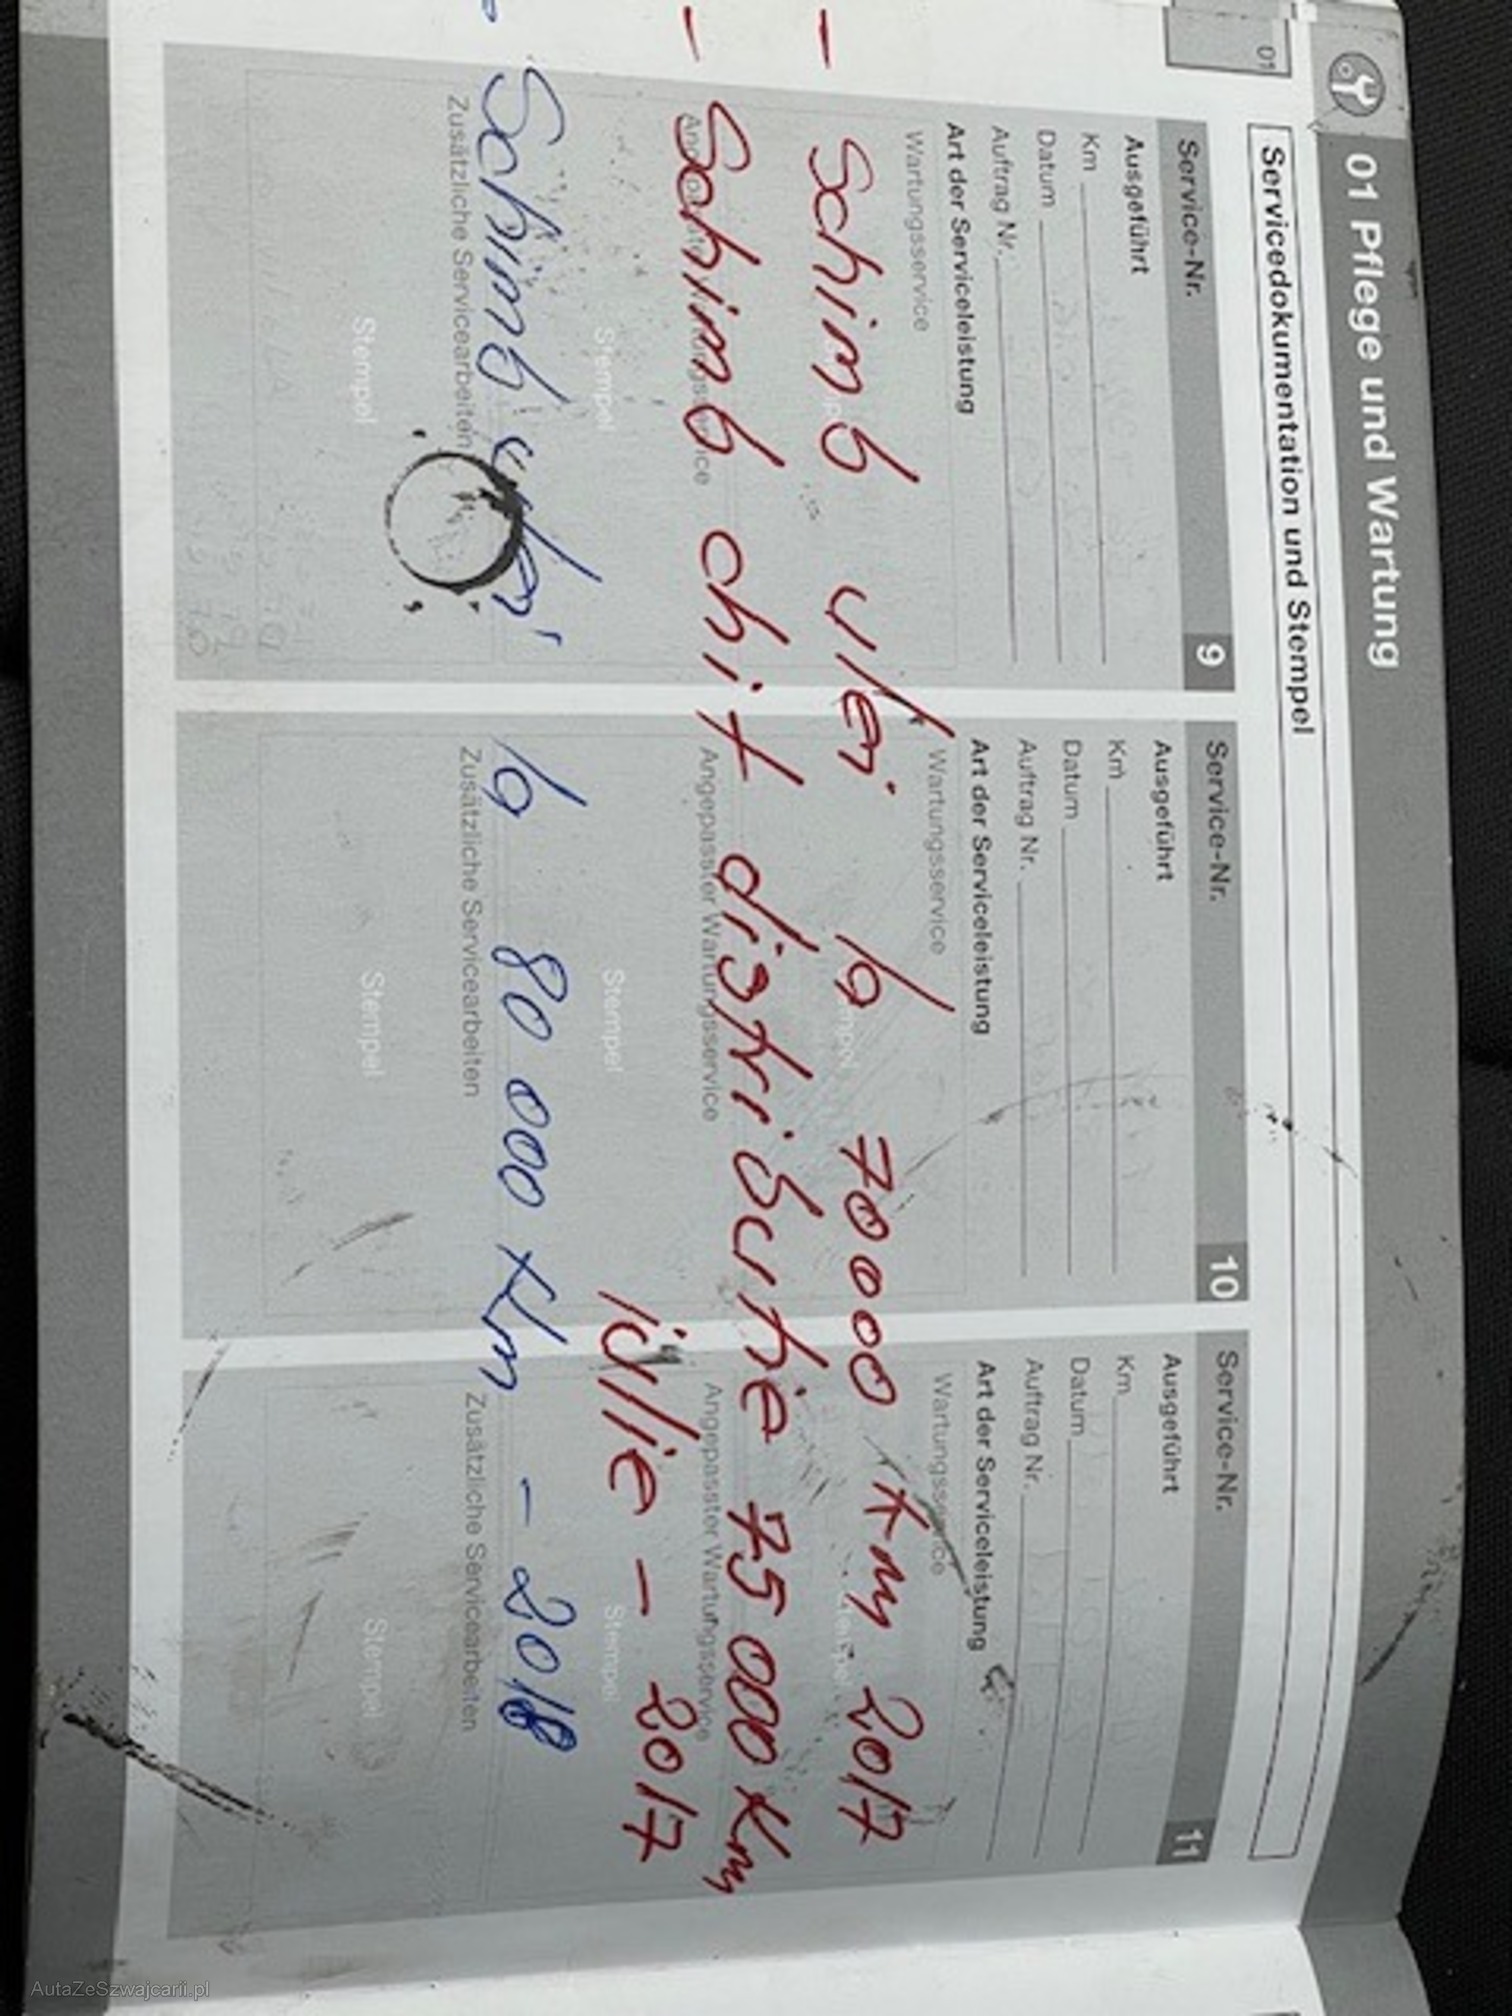 01 Pflege und Wartung
01
Servicedokumentation und Stempel
Service-Nr. 9
Ausgeführt
Km
Datum
Auftrag Nr.
Art der Serviceleistung
Wartungsservice
Stempel
Zusätzliche Servicearbeiten
Stempel
Service-Nr. 10
Ausgeführt
Km
Datum
Auftrag Nr.
Art der Serviceleistung
Wartungsservice
Angepasster Wartungsservice
Stempel
Zusätzliche Servicearbeiten
Stempel
Service-Nr. 11
Ausgeführt
Km
Datum
Auftrag Nr.
Art der Serviceleistung
Wartungsservice
Angepasster Wartungsservice
Stempel
Zusätzliche Servicearbeiten
Stempel
- Schimb ulei la 70000 km - 2017
- Schimb chit distributie 75 000 Km
iulie - 2017
- Schimb ulei la 80 000 Km - 2018
AutaZeSzwajcarii.pl